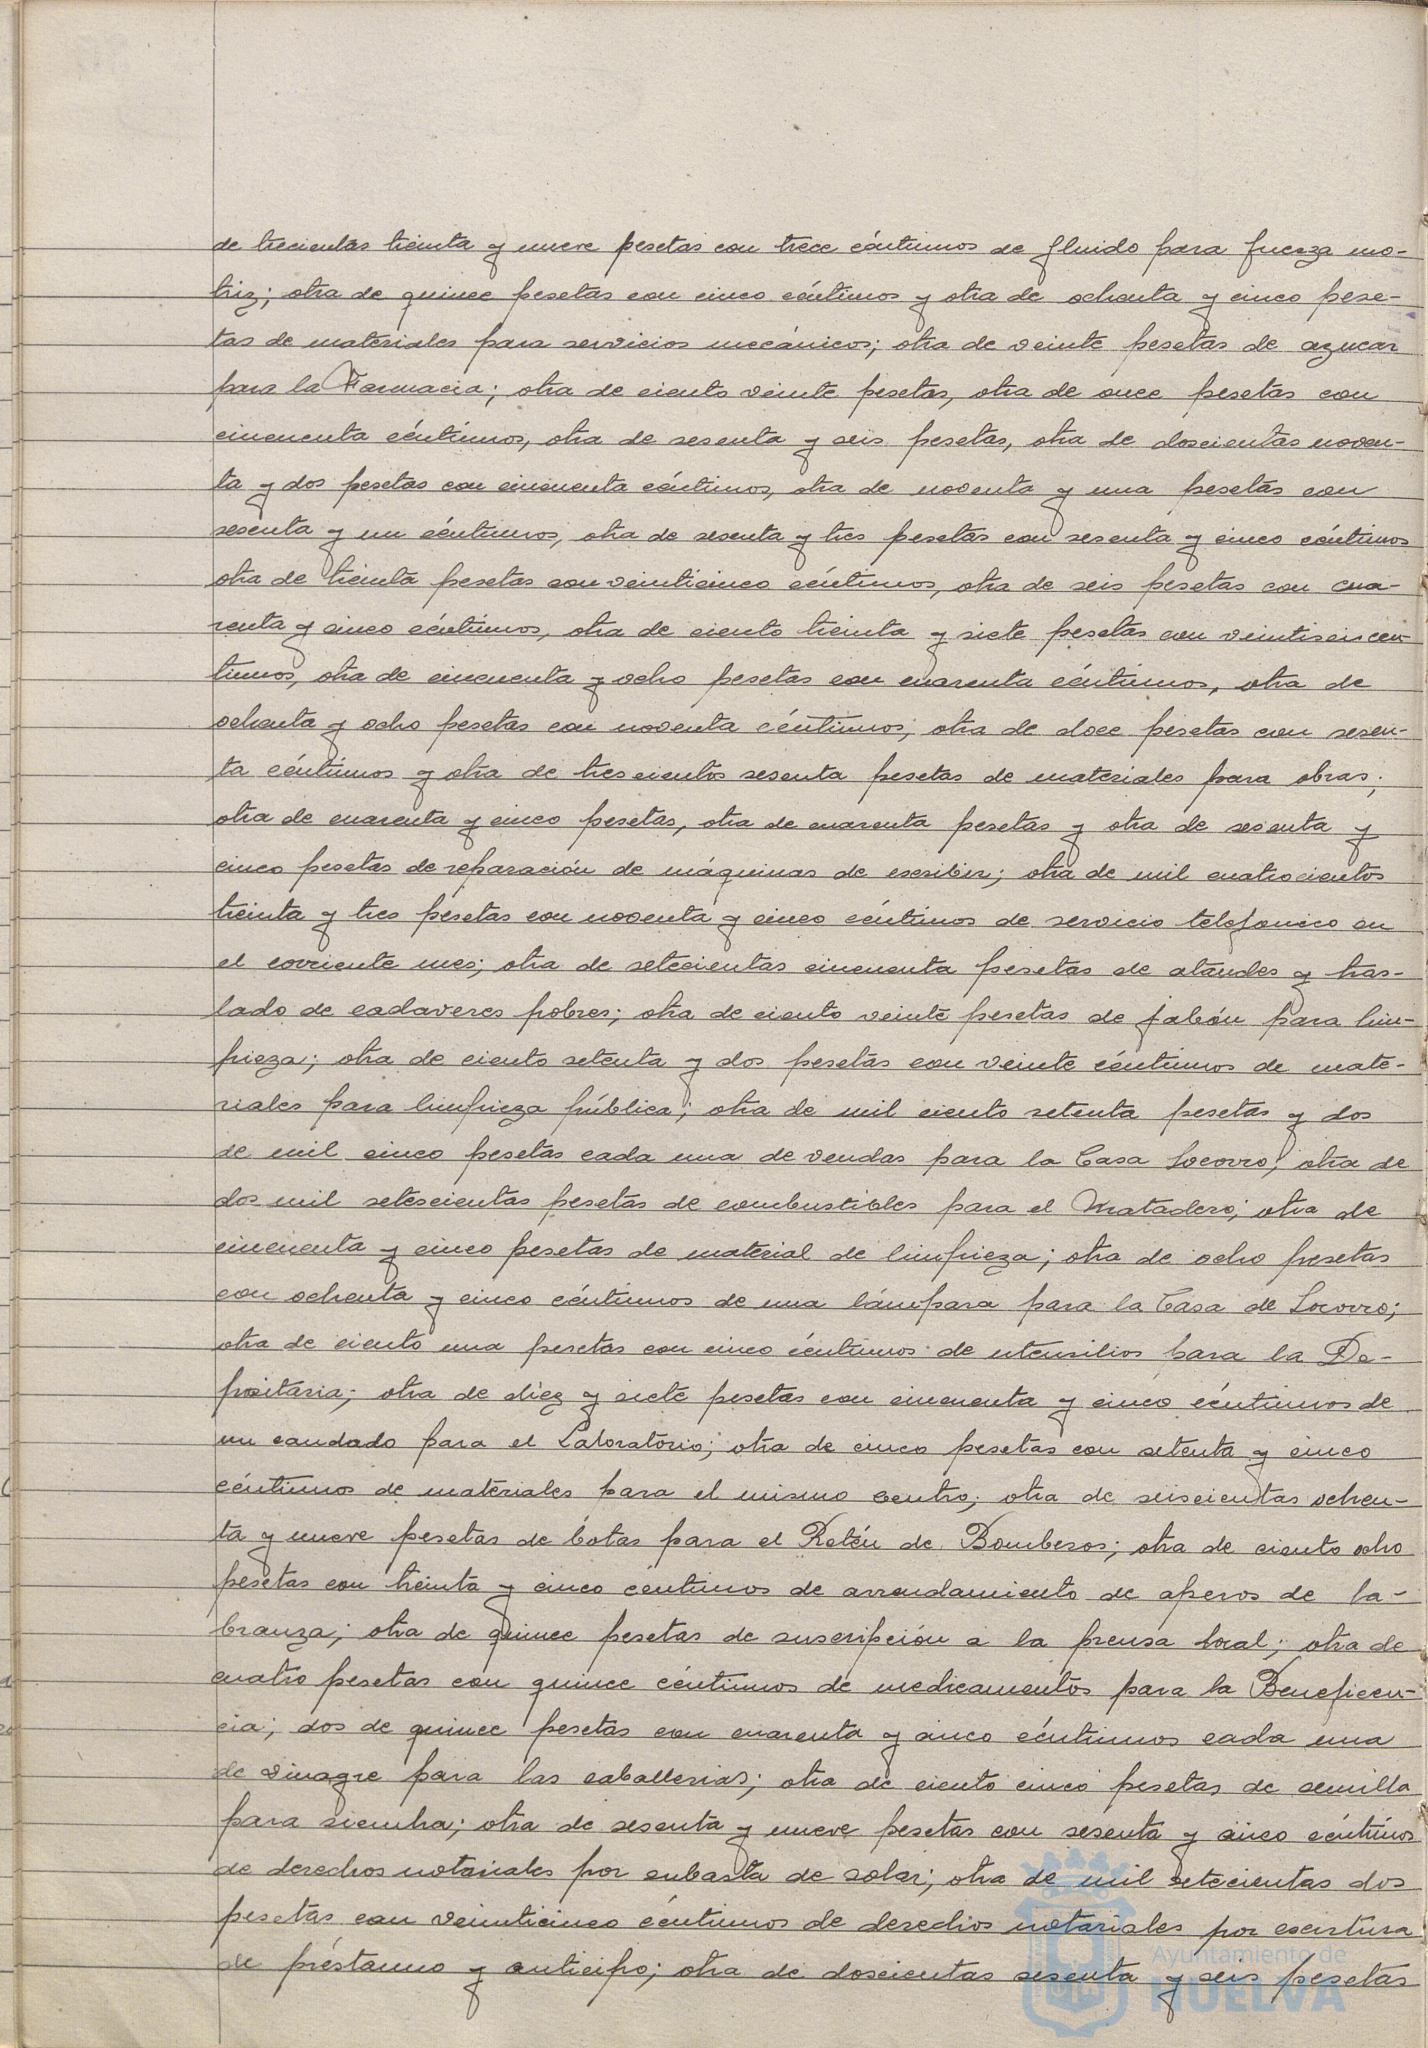 de trecientas treinta y nueve pesetas con trece céntimos de fluido para fuerza mo-
triz; otra de quince pesetas con cinco céntimos y otra de ochenta y cinco pese-
tas de materiales para servicios mecánicos; otra de veinte pesetas de azucar
para la Farmacia; otra de ciento veinte pesetas, otra de once pesetas con
cincuenta céntimos, otra de sesenta y seis pesetas, otra de doscientas noven-
ta y dos pesetas con cincuenta céntimos, otra de noventa y una pesetas con
sesenta y un céntimos, otra de sesenta y tres pesetas con sesenta y cinco céntimos
otra de treinta pesetas con veinticinco céntimos, otra de seis pesetas con cua-
renta y cinco céntimos, otra de ciento treinta y siete pesetas con veintiseis cen-
timos, otra de cincuenta y ocho pesetas con cuarenta céntimos, otra de
ochenta y ocho pesetas con noventa céntimos; otra de doce pesetas con sesen-
ta céntimos y otra de trescientos sesenta pesetas de materiales para obras;
otra de cuarenta y cinco pesetas, otra de cuarenta pesetas y otra de sesenta y
cinco pesetas de reparación de máquinas de escribir; otra de mil cuatrocientos
treinta y tres pesetas con noventa y cinco céntimos de servicio telefonico en
el corriente mes; otra de setecientas cincuenta pesetas de ataudes y tras-
lado de cadaveres pobres; otra de ciento veinte pesetas de jabón para lim-
pieza; otra de ciento setenta y dos pesetas con veinte céntimos de mate-
riales para limpieza pública; otra de mil ciento setenta pesetas y dos
de mil cinco pesetas cada una de vendas para la Casa Socorro; otra de
dos mil setescientas pesetas de combustibles para el Matadero; otra de
cincuenta y cinco pesetas de material de limpieza; otra de ocho pesetas
con ochenta y cinco céntimos de una lámpara para la Casa de Socorro;
otra de ciento una pesetas con cinco céntimos de utensilios para la De-
positaria; otra de diez y siete pesetas con cincuenta y cinco céntimos de
un candado para el Laboratorio; otra de cinco pesetas con setenta y cinco
céntimos de materiales para el mismo centro; otra de seiscientas ochen-
ta y nueve pesetas de botas para el Retén de Bomberos; otra de ciento ocho
pesetas con treinta y cinco centimos de arrendamiento de aperos de la-
branza; otra de quince pesetas de suscripción a la prensa local; otra de
cuatro pesetas con quince céntimos de medicamentos para la Beneficen-
cia; dos de quince pesetas con cuarenta y cinco céntimos cada una
de vinagre para las caballerias; otra de ciento cinco pesetas de semilla
para siembra; otra de sesenta y nueve pesetas con sesenta y cinco céntimos
de derechos notariales por subasta de solar; otra de mil setecientas dos
pesetas con veinticinco céntimos de derechos notariales por escritura
de préstamo y anticipo; otra de doscientas sesenta y seis pesetas
Ayuntamiento de
HUELVA